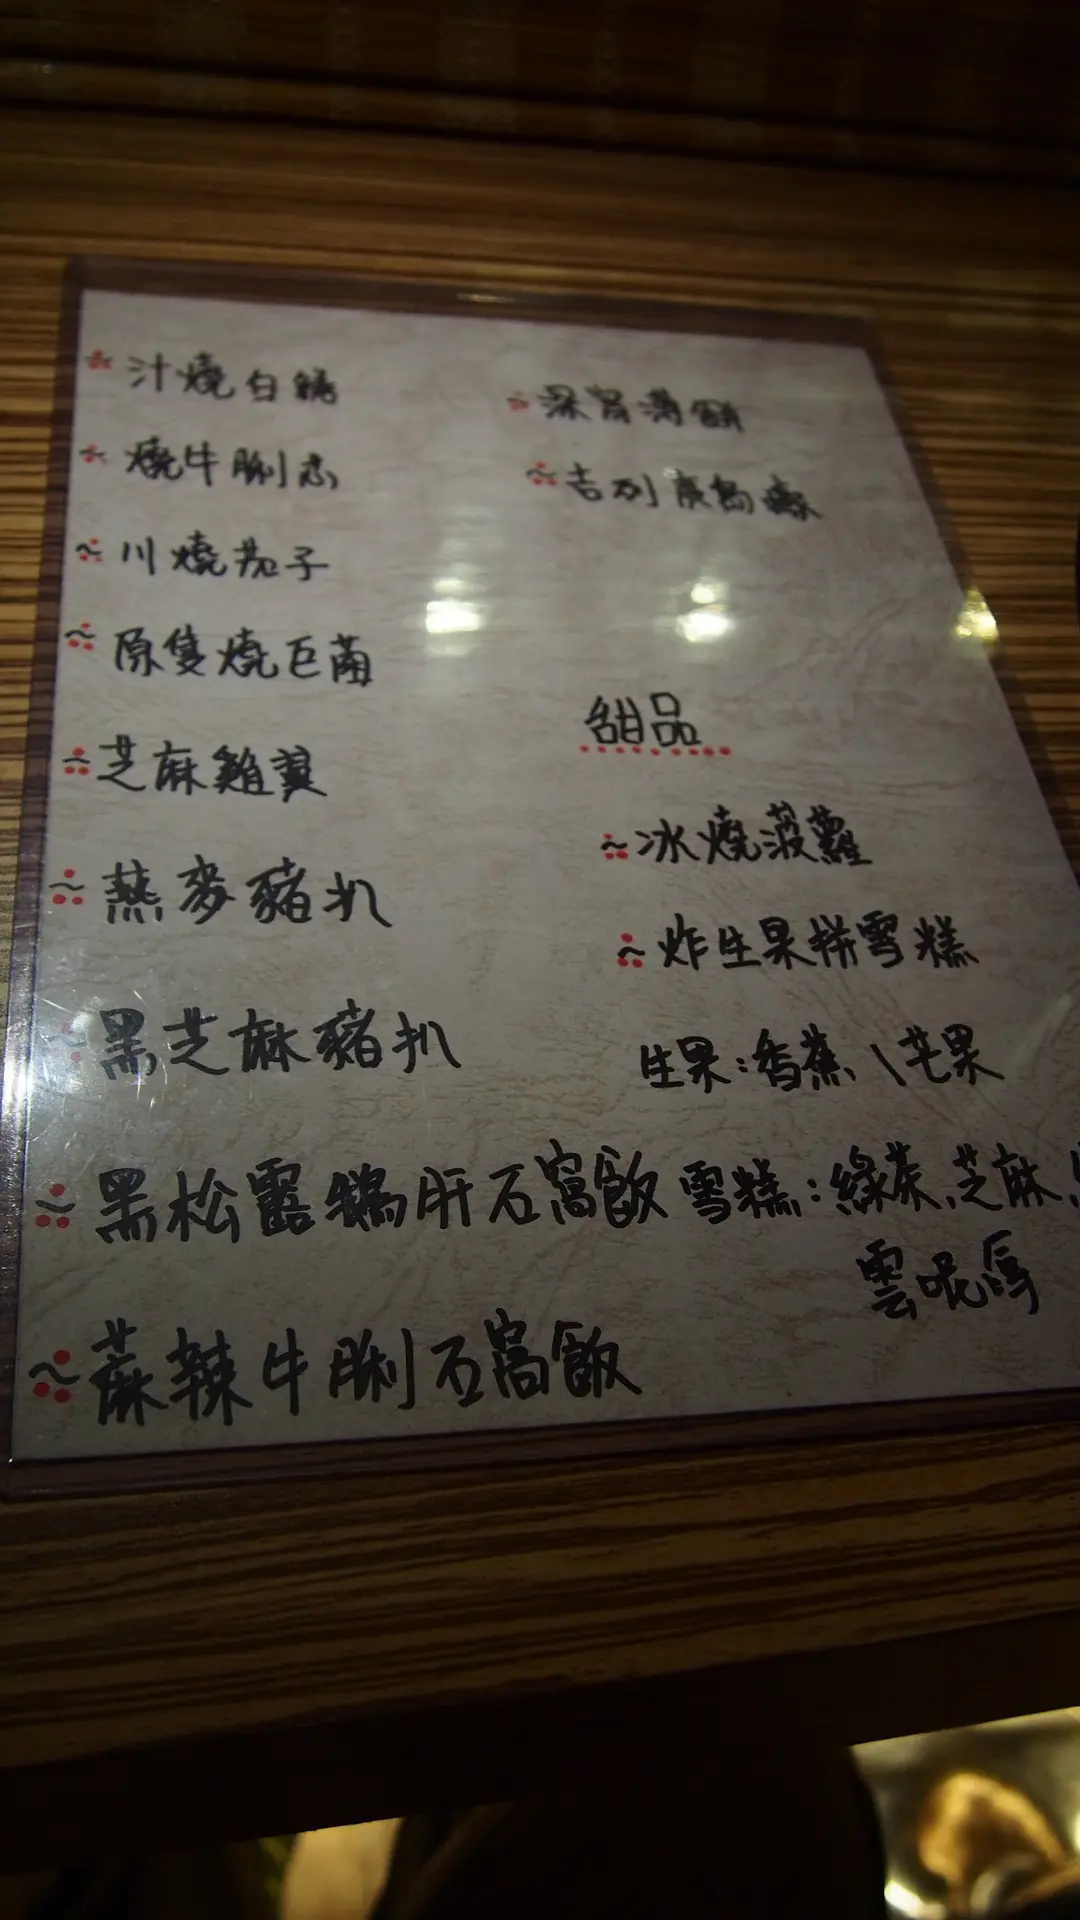 汁燒白鱔
燒牛脷芯
川燒茄子
原隻燒巨菌
芝麻雞翼
燕麥豬扒
黑芝麻豬扒
黑松露鵝肝石窩飯
蔴辣牛脷石窩飯
薄餅
吉列廣島蠔
甜品
冰燒菠蘿
炸生果拼雪糕
生果：香蕉、芒果
雪糕：綠茶、芝麻、
雲呢拿